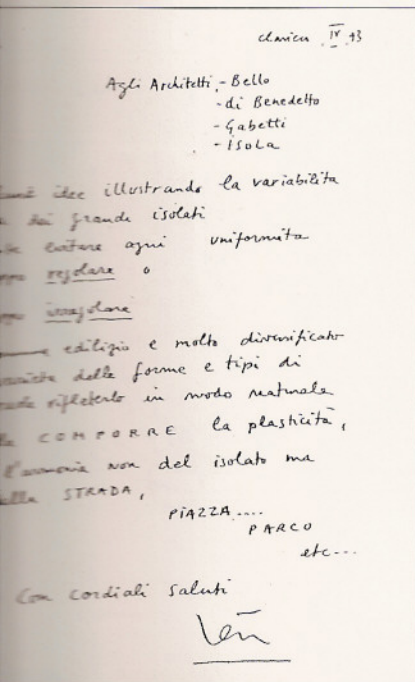 IV 93
Agli Architetti - Bello
- di Benedetto
- Gabetti
- ISOLA
idee illustrando la variabilita
dei grandi isolati
evitare ogni uniformita
regolare o
irregolare
edilizio e molto diversificato
delle forme e tipi di
rifleterlo in modo naturale
COMPORRE la plasticità,
l'armonia non del isolato ma
STRADA,
PIAZZA....
PARCO
etc...
Con cordiali saluti